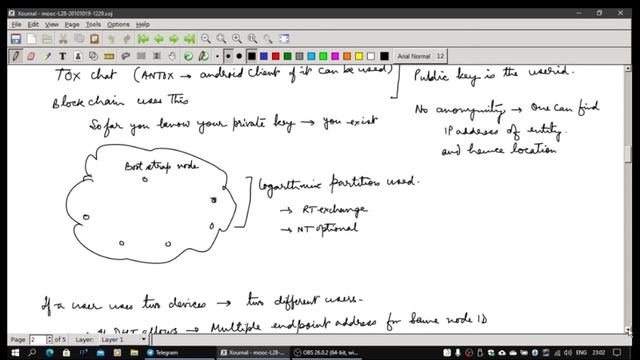 Xournal - mooc-L28-20101019-1229.xoj
File Edit View Journal Page Tools Options Help
Arial Normal 12
TOX chat (ANTOX → android client of it can be used)
Public key is the userid.
Blockchain uses this
So far you know your private key → you exist
No anonymity → One can find
IP address of entity
and hence location
Bootstrap node
Logarithmic partition used.
→ RT exchange
→ NT optional
If a user uses two devices → two different users.
DHT allows → Multiple endpoint address for same node ID
Page 2 of 5 Layer: Layer 1
Telegram
Xournal - mooc-L28-20101019-1...
OBS 26.0.2 (64-bit, wi...
ENG 23:02